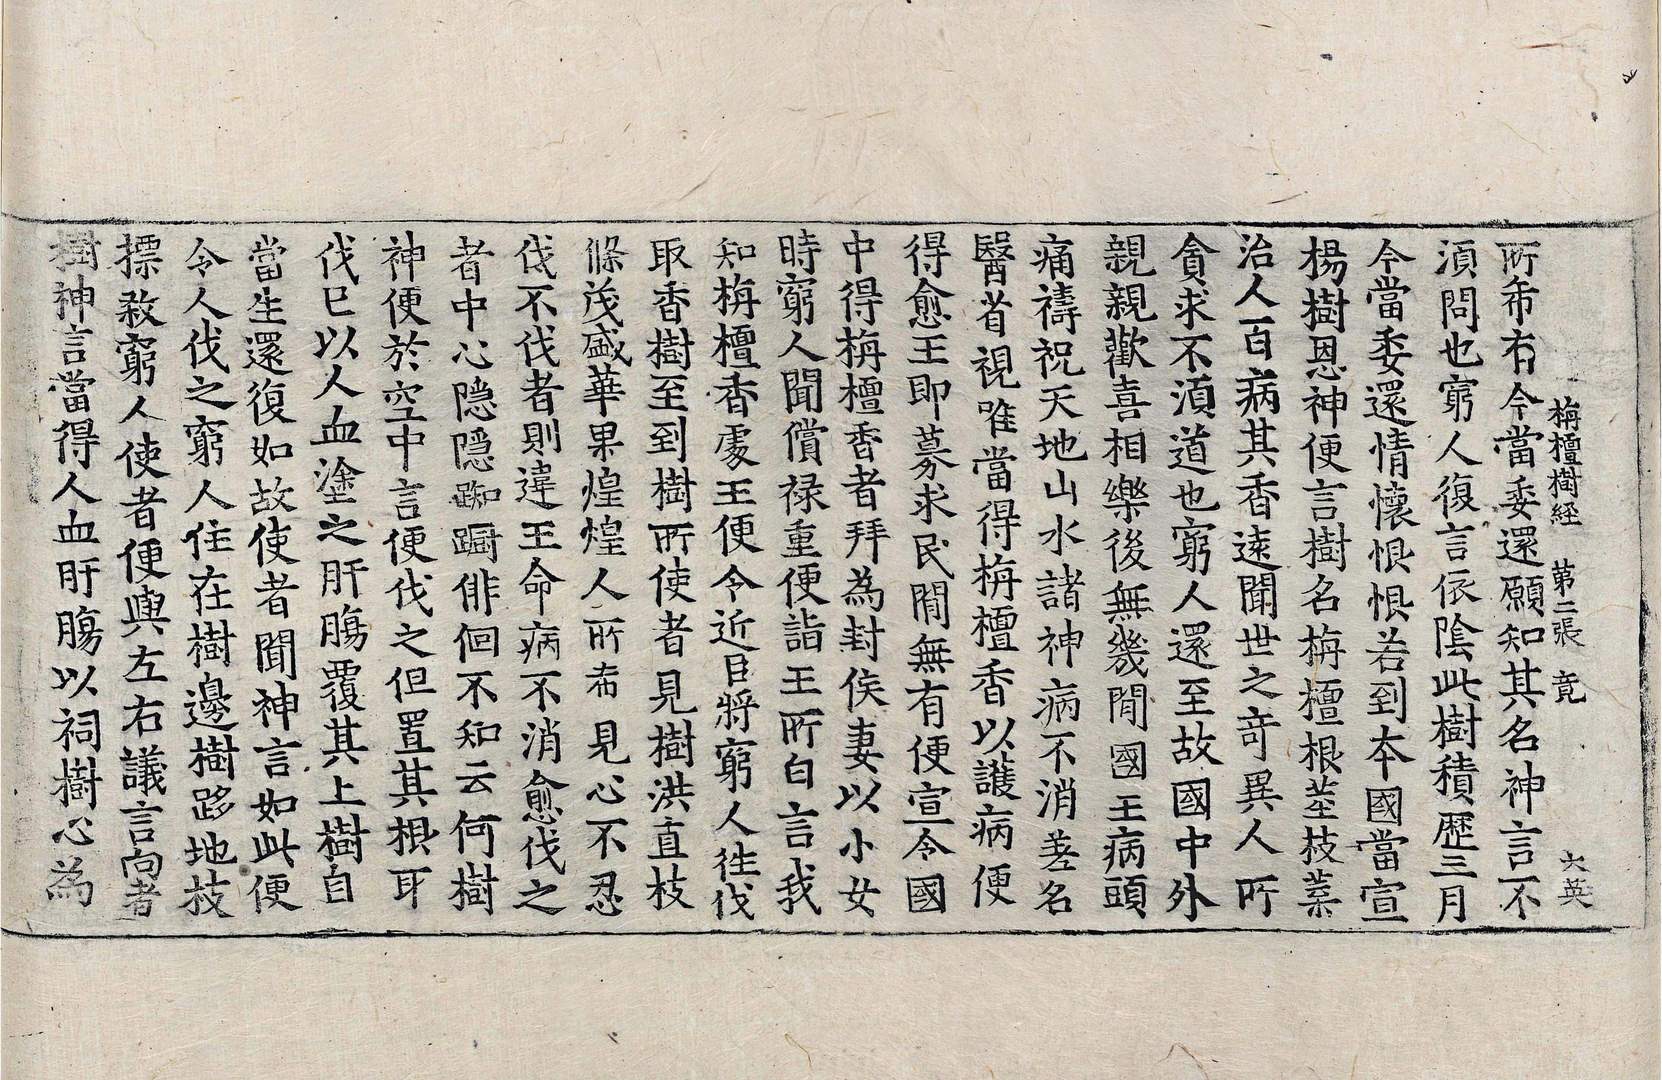 栴檀樹経　第二張　竟　大英
所希有今當委還願知其名神言不
湏問也窮人復言依陰此樹積歴三月
今當委還情懷悵恨若到本國當宣
揚樹恩神便言樹名栴檀根莖枝葉
治人百病其香遠聞世之奇異人所
貪求不湏道也窮人還至故國中外
親親歡喜相樂後無幾閒國王病頭
痛禱祝天地山水諸神病不消差名
醫省視唯當得栴檀香以護病便
得愈王即募求民閒無有便宣令國
中得栴檀香者拜為封侯妻以小女
時窮人聞償禄重便詣王所白言我
知栴檀香處王便令近臣將窮人徃伐
取香樹至到樹所使者見樹洪直枝
條茂盛華果煌煌人所希見心不忍
伐不伐者則違王命病不消愈伐之
者中心隠隠踟蹰俳佪不知云何樹
神便於空中言便伐之但置其根耳
伐已以人血塗之肝膓覆其上樹自
當生還復如故使者聞神言如此便
令人伐之窮人住在樹邊樹跢地枝
摽敎窮人使者便與左右議言向者
樹神言當得人血肝膓以祠樹心為